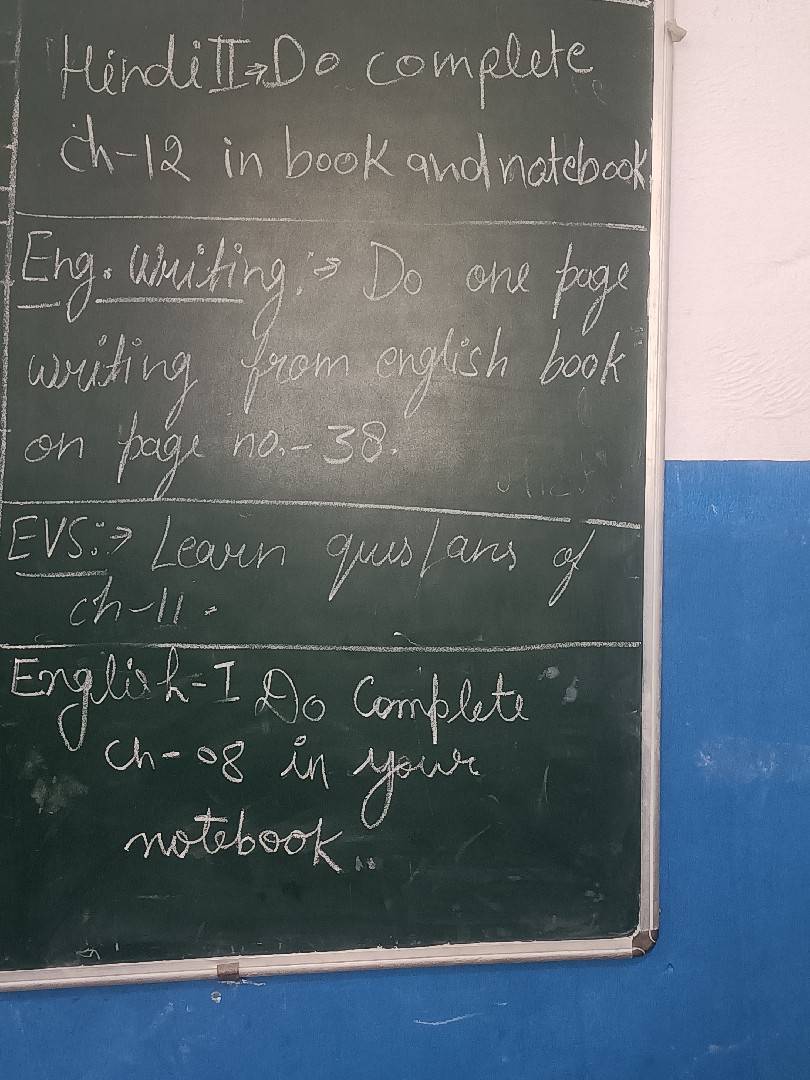 Hindi II→Do complete
ch-12 in book and notebook
Eng. Writing:→ Do one page
writing from english book
on page no.- 38.
EVS:→ Learn ques/ans of
ch-11.
English-I Do Complete
ch-08 in your
notebook..